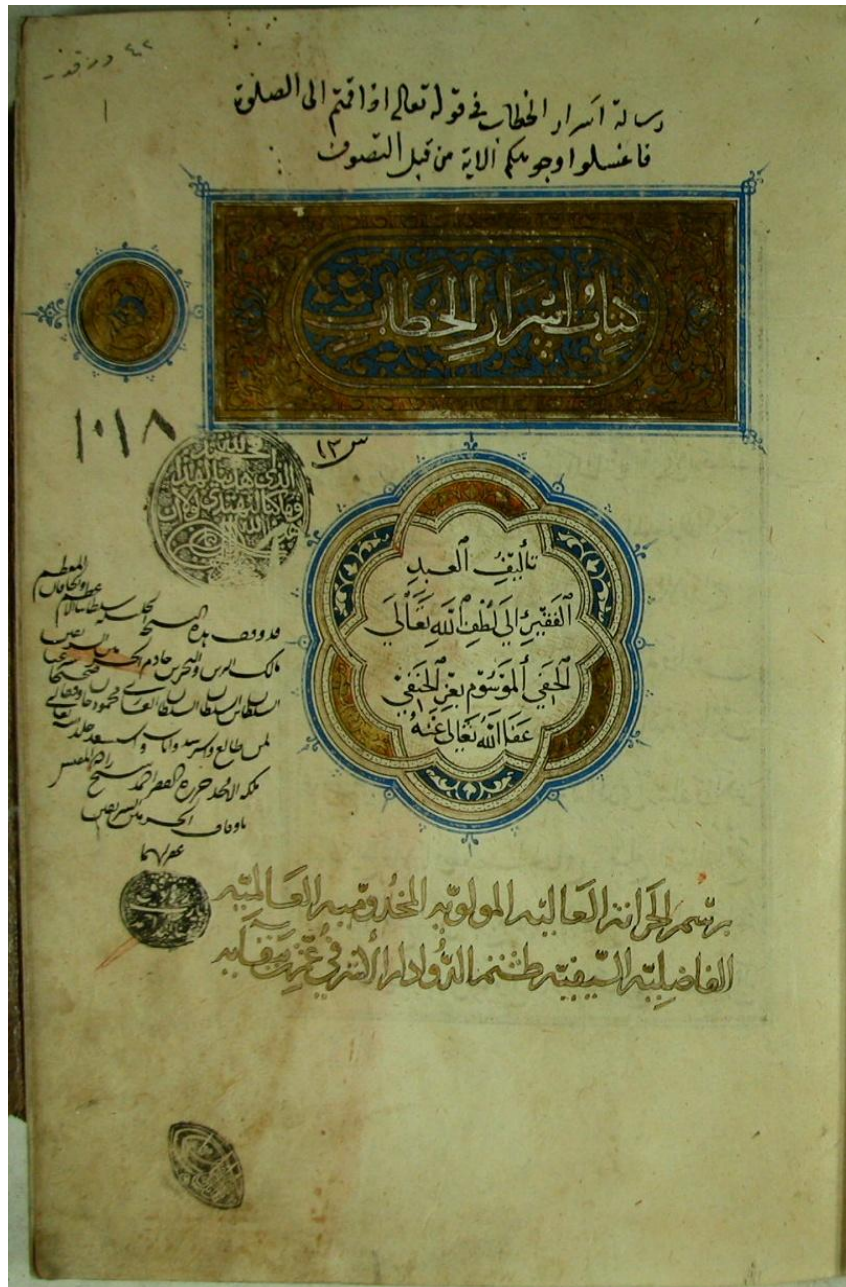 ٤٢ ورقه
رسالة اسرار الخطاب في قوله تعالى اذا قمتم الى الصلوة
فاغسلوا وجوهكم الاية من قبل التصوف
كتاب اسرار الخطاب
١٠١٨
س ١٣
الحمد لله
الذي هدانا لهذا
وما كنا لنهتدي لولا ان
هدانا الله
تأليف العبد
الفقير الى لطف الله تعالى
الخفي الموسوم بعز الحنفي
عفا الله تعالى عنه
قد وقف هذه النسخة الجليلة سلطاننا الاعظم والخاقان المعظم
مالك البرين والبحرين خادم الحرمين الشريفين
السلطان بن السلطان السلطان الغازي محمود خان
لمن طالع
حرره الفقير احمد شيخ زاده المفتش
باوقاف الحرمين الشريفين
غفر لهما
برسم الخزانة العالية المولوية المخدومية العالمية
الفاضلية السيفية طشتمر الدوادار الاشرفي عز نصره